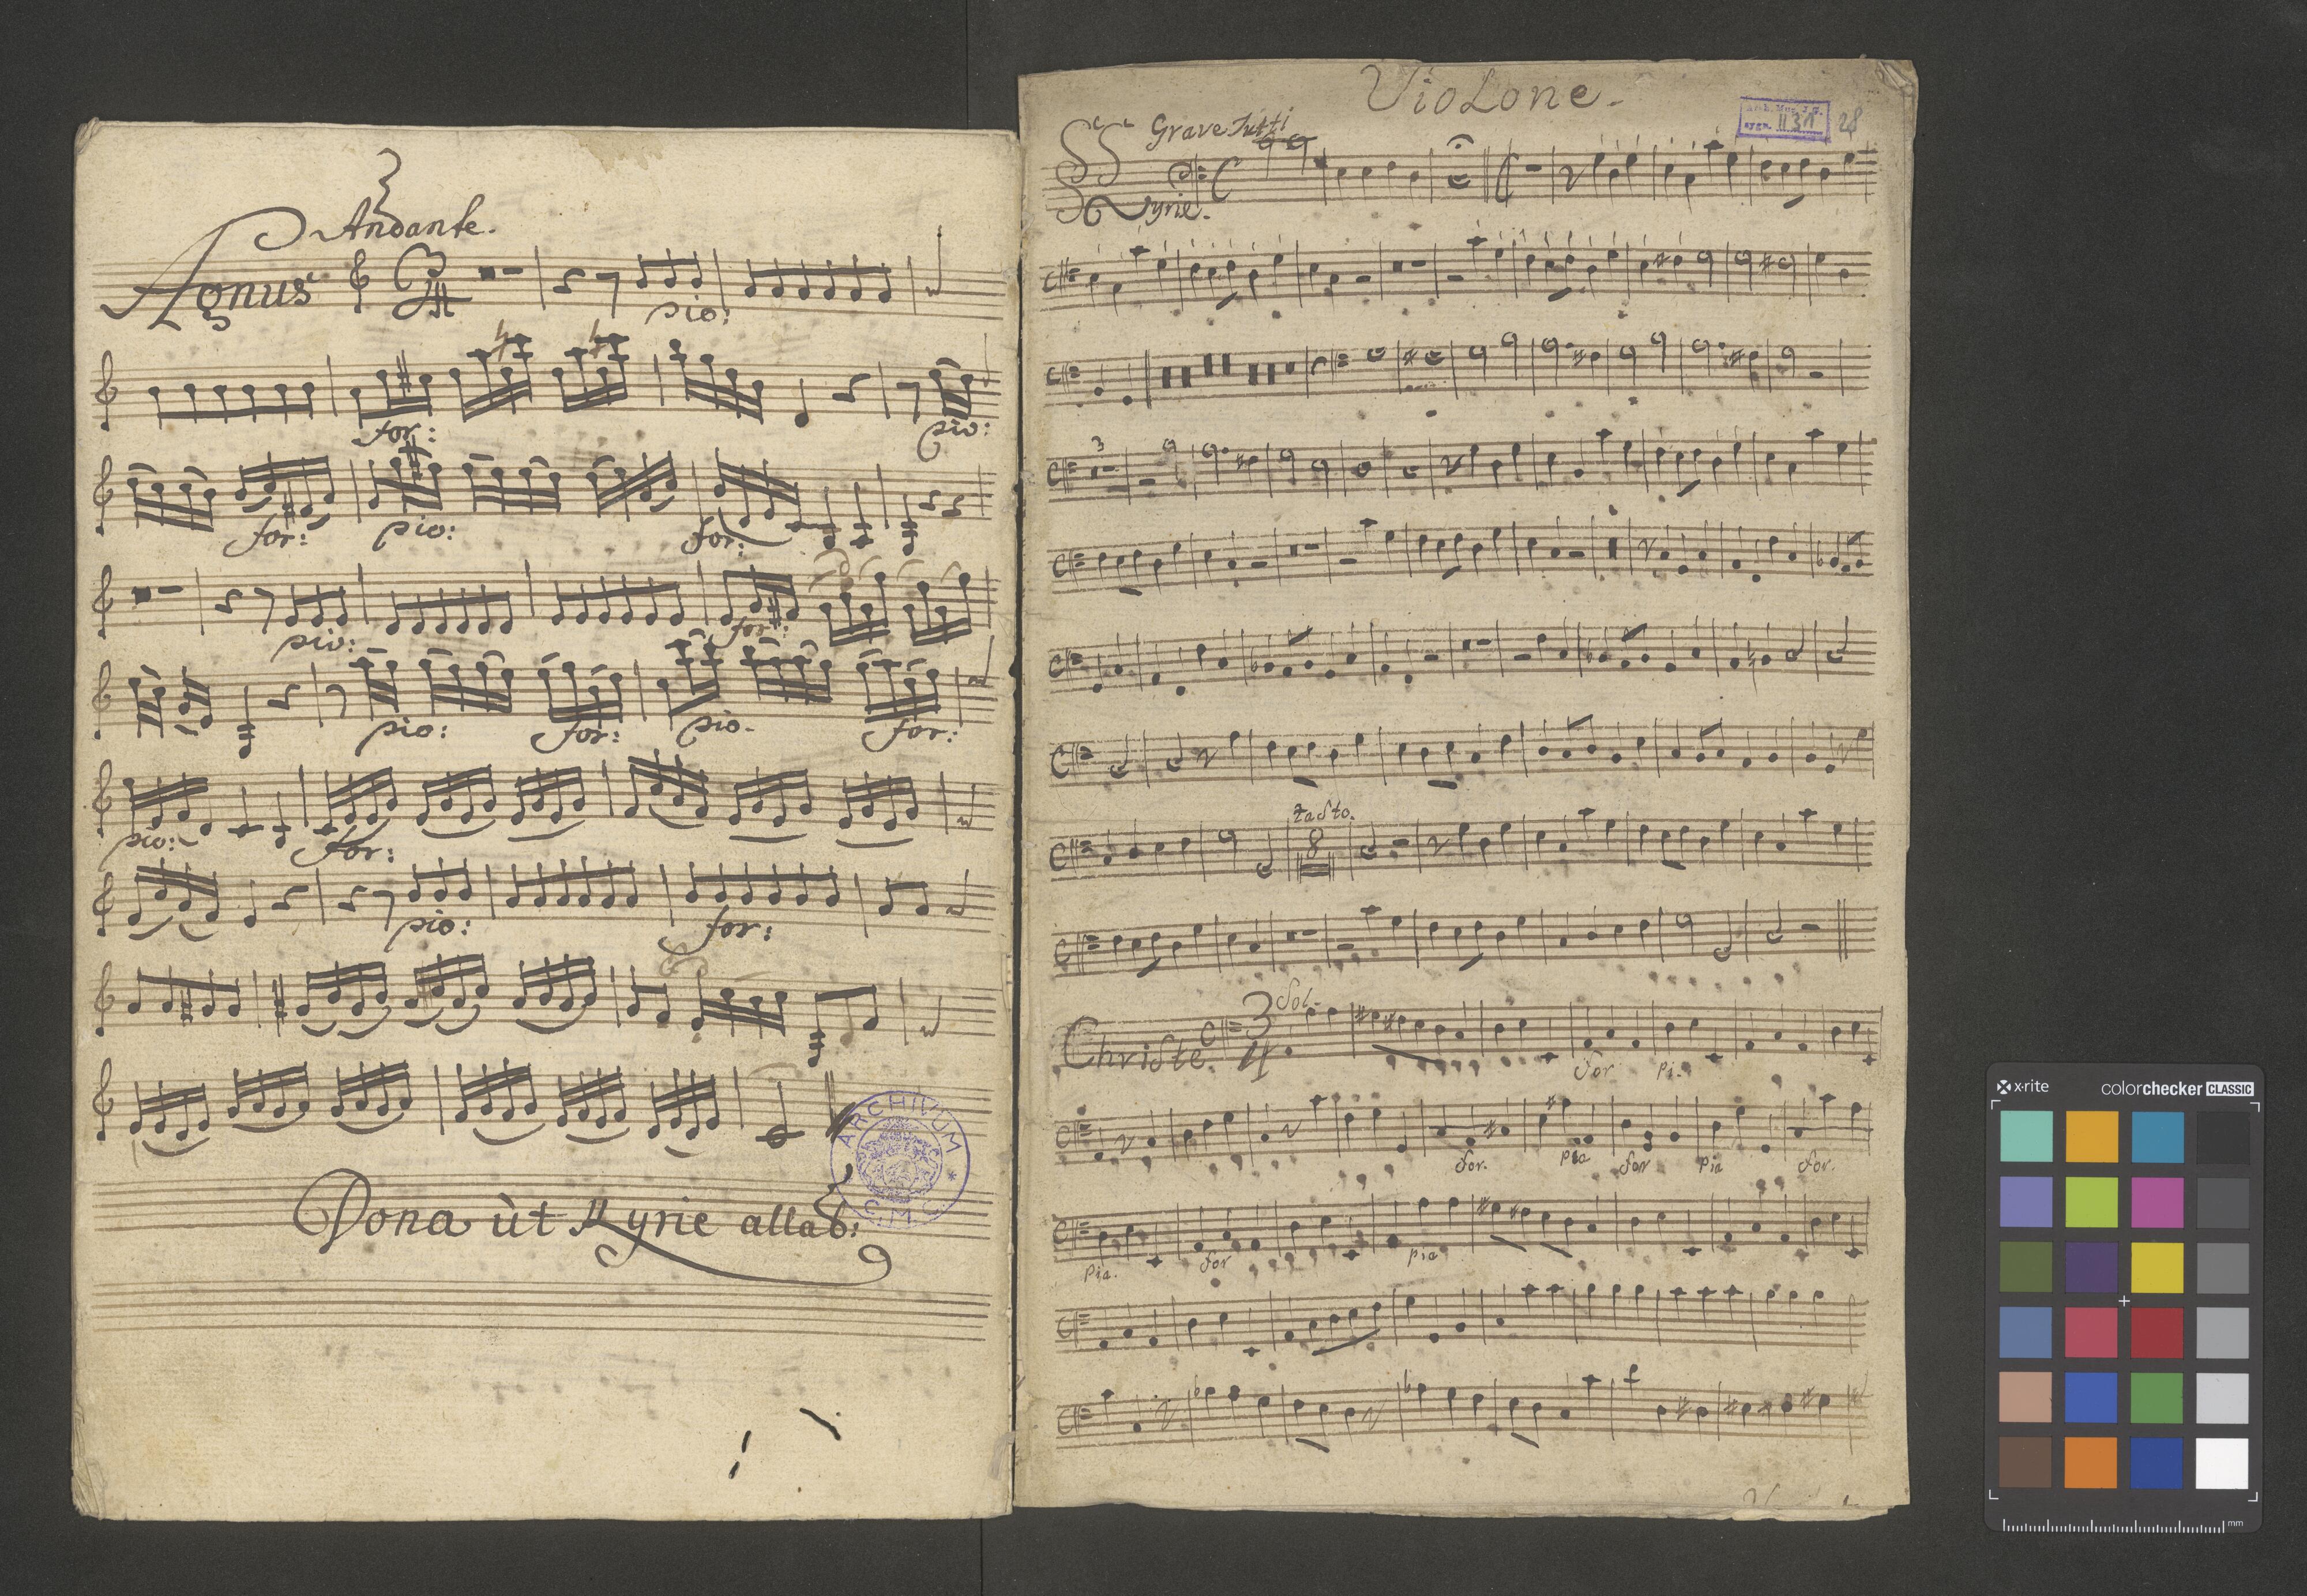 Andante.
Agnus
pio:
for:
pio:
for:
pio:
for:
pio:
for:
pio:
for:
pio.
for:
pio:
for:
pio:
for:
Dona ùt Kyrie allab:
ARCHIVUM * S. M. C.
Violone.
28
Grave Tutti
Kyrie.
3
tasto.
8
Christe.
3
4
Sol.
for
pi.
for.
pia
for
pia
for.
pia.
for
pia
f
x-rite
colorchecker CLASSIC
mm